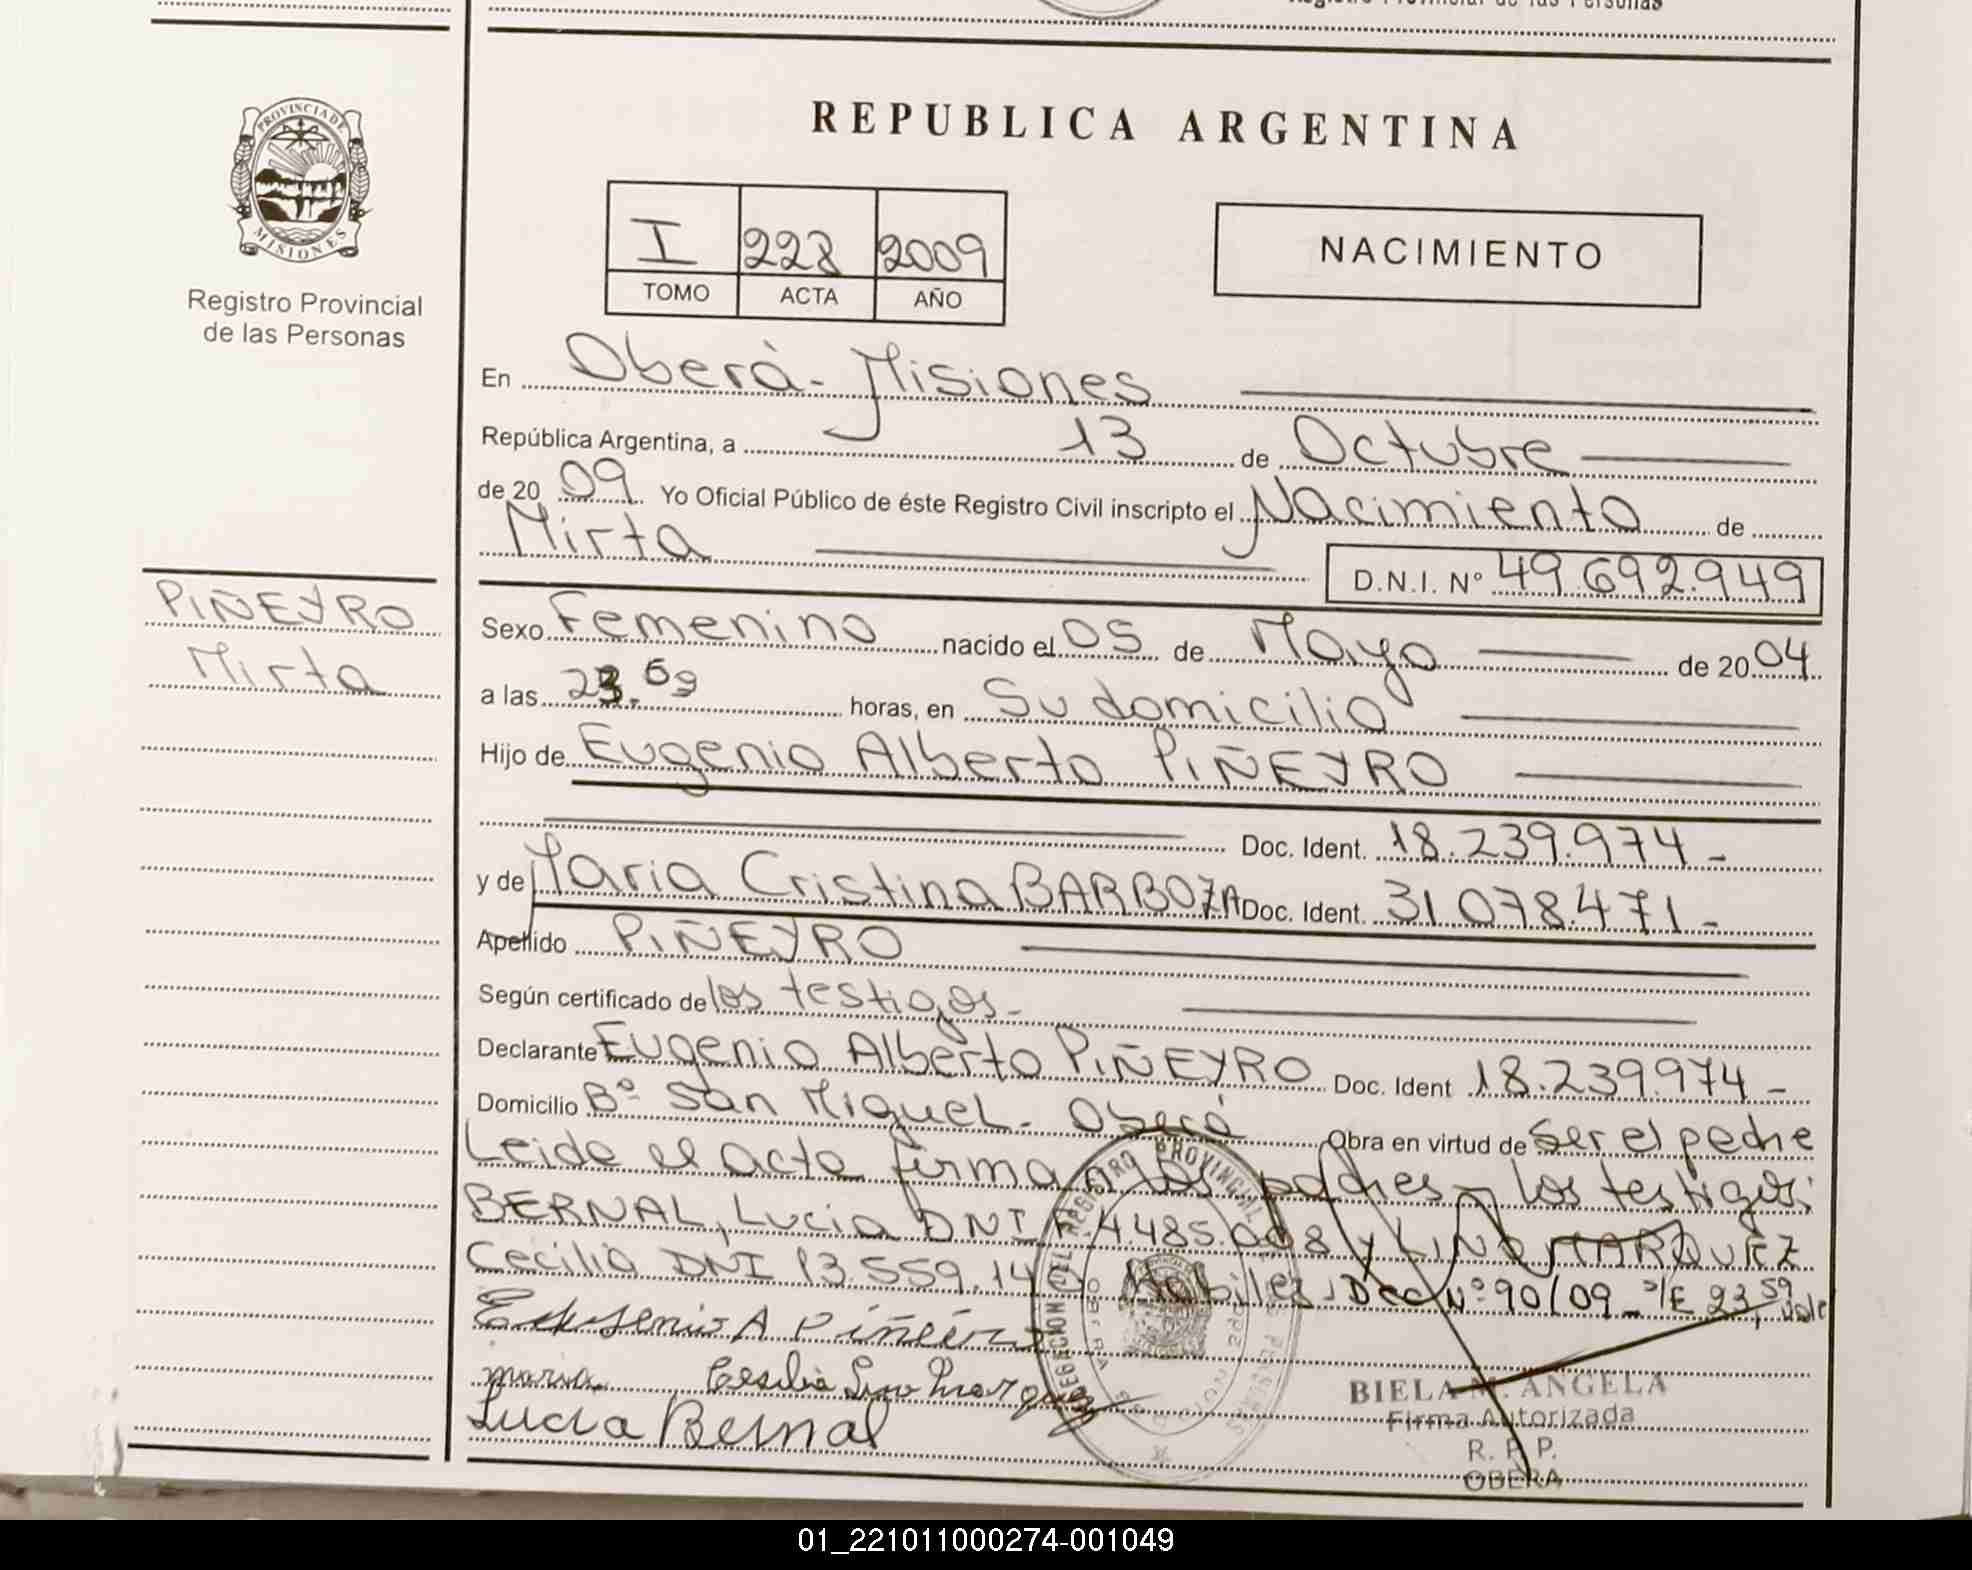 Registro Provincial de las Personas
PROVINCIA DE
MISIONES
Registro Provincial
de las Personas
REPUBLICA ARGENTINA
I 228 2009
TOMO ACTA AÑO
NACIMIENTO
En Oberà - Misiones
República Argentina, a 13 de Octubre
de 20 09 Yo Oficial Público de éste Registro Civil inscripto el Nacimiento de
Mirta
D.N.I. Nº 49.692.949
PIÑEYRO
Mirta
Sexo Femenino nacido el 05 de Mayo de 20 04
a las 23.59 horas, en Su domicilio
Hijo de Eugenio Alberto PIÑEYRO
Doc. Ident. 18.239.974-
y de Maria Cristina BARBOZA Doc. Ident. 31.078.471-
Apellido PIÑEYRO
Según certificado de los testigos-
Declarante Eugenio Alberto PIÑEYRO Doc. Ident 18.239.974-
Domicilio Bº San Miguel- Oberá Obra en virtud de Ser el padre
Leida el acta firma los padres y los testigos:
BERNAL, Lucia DNI 4.485.008 y LINO MARQUEZ
Cecilia DNI 13.559.14 Habiles. Dec Nº 90/09_ S/E 23,59 vale
A Piñeiro
maria Cesilia Lino Marquez
Lucia Bernal
REGISTRO PROVINCIAL
BIELA M. ANGELA
Firma Autorizada
R. P. P.
OBERA
01_221011000274-001049